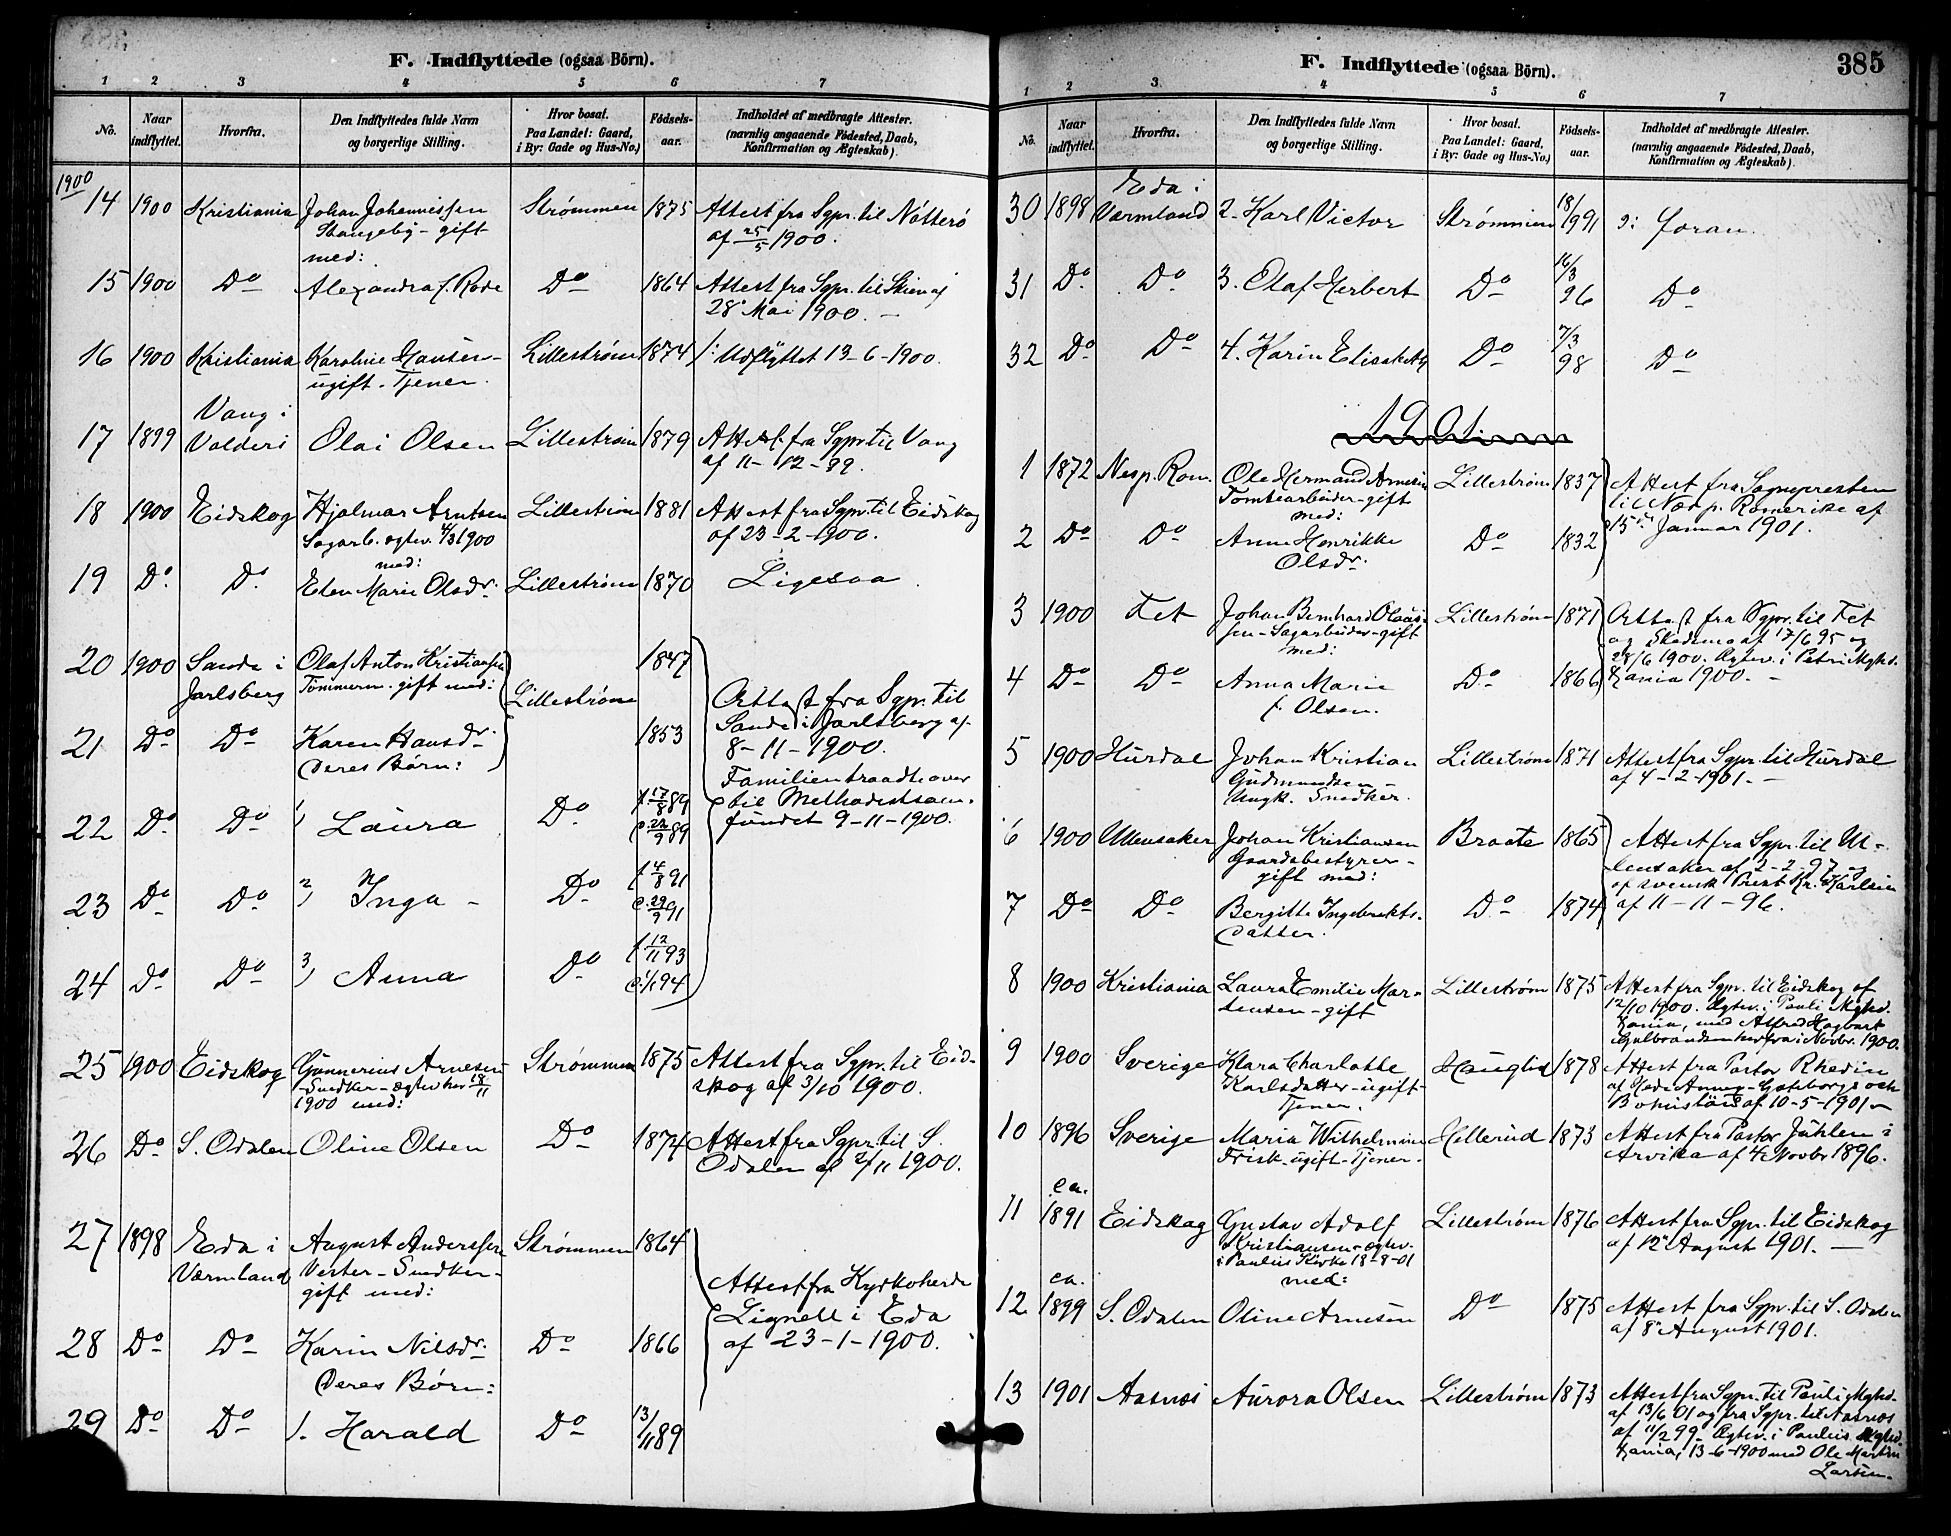 F. Indflyttede (ogsaa Börn).
1 2 3 4 5 6 7
No. Naar indflyttet. Hvorfra. Den Indflyttedes fulde Navn og borgerlige Stilling. Hvor bosat. Paa Landet: Gaard, i By: Gade og Hus-No.) Fødsels-aar. Indholdet af medbragte Attester. (navnlig angaaende Födested, Daab, Konfirmation og Ægteskab)
1900
14 1900 Kristiania Johan Johannessen Strømmen 1875 Attest fra Sgpr. til Nötterö
Stangeby - gift af 25/5 1900.
med:
15 1900 Do Alexandra f. Rode Do 1864 Attest fra Sgpr. til Skien af
28 Mai 1900. -
16 1900 Kristiania Karoline Hansen - Lillestrøm 1874 /: Udflyttet 13-6-1900.
ugift - Tjener.
Vang i
17 1899 Valders Olai Olsen Lillestrøm 1879 Attest fra Sgpr. til Vang
af 11-12-99.
18 1900 Eidskog Hjalmar Arntsen Lillestrøm 1881 Attest fra Sgpr. til Eidskog
Sagarb. ægtev. 4/3 1900 af 23-2-1900.
med:
19 Do Do Elen Marie Olsdr. Lillestrøm 1870 Ligesaa.
20 1900 Sande i Olaf Anton Kristiansen 1847
Jarlsberg Tømmerm. gift med: Lillestrøm Attest fra Sgpr. til
Sande i Jarlsberg af
21 Do Do Karen Hansdr. 1853 8-11-1900.
Deres Børn: Familien traadte over
til Methodistsam-
22 Do Do 1) Laura Do f. 17/8 89 fundet 9-11-1900.
d. 22/9 89
23 Do Do 2) Inga - Do f. 4/8 91
d. 29/9 91
24 Do Do 3) Anna Do f. 12/11 93
d. 1/1 94
25 1900 Eidskog Gunnerius Arnesen Strømmen 1875 Attest fra Sgpr. til Eid-
Snedker - ægtev. her 18/11 skog af 3/10 1900.
1900 med:
26 Do S. Odalen Oline Olsen Do 1874 Attest fra Sgpr. til S.
Odalen af 2/11 1900.
27 1898 Eda i August Anderssen Strømmen 1864
Værmland Vester - Snedker - Attest fra Kyrkoherde
gift med: Lignell i Eda
28 Do Do Karin Nilsdr. Do 1866 af 23-1-1900.
Deres Børn:
29 Do Do 1. Harald Do 13/11 89
F. Indflyttede (ogsaa Börn). 385
1 2 3 4 5 6 7
No. Naar indflyttet. Hvorfra. Den Indflyttedes fulde Navn og borgerlige Stilling. Hvor bosat. Paa Landet: Gaard, i By: Gade og Hus-No.) Fødsels-aar. Indholdet af medbragte Attester. (navnlig angaaende Födested, Daab, Konfirmation og Ægteskab).
Eda i
30 1898 Værmland 2. Karl Victor Strømmen 18/9 91 ɔ: foran.
31 Do Do 3. Olaf Herbert Do 16/3 96 Do
32 Do Do 4. Karin Elisabeth Do 7/3 98 Do
1901
1 1872 Nesp. Rom. Ole Hermand Arnesen Lillestrøm 1837 Attest fra Sognepresten
Tomtearbeider - gift til Næsp. Romerike af
med: 15de Januar 1901.
2 Do Do Anne Henrikke Do 1832
Olsdr.
3 1900 Fet Johan Bernhard Olaus- Lillestrøm 1871 Attest fra Sgpr. til Fet
sen - Sagarbeider - gift og Skedsmo af 17/6 95 og
med: 28/6 1900. Ægtev. i Petri Mghd.
4 Do Do Anna Marie Do 1866 Kania 1900. -
f. Olsen.
5 1900 Hurdal Johan Kristian Lillestrøm 1871 Attest fra Sgpr. til Hurdal
Gudmundsen af 4-2-1901. -
Ungk. Snedker.
6 1900 Ullensaker Johan Kristiansen Braate 1865 Attest fra Sgpr. til Ul-
Gaardsbestyrer - lensaker af 2-2-97 og
gift med: af svensk Prest Kr. Karlsen
7 Do Do Bergitte Ingebrekts- Do 1874 af 11-11-96.
datter.
8 1900 Kristiania Laura Emilie Mar- Lillestrøm 1875 Attest fra Sgpr. til Eidskog af
tensen - gift 12/10 1900. Ægtev. i Pauli Mghd.
Kania, med Alfred Hagbart
Gulbrandsen herfra i Novbr. 1900.
9 1900 Sverige Klara Charlotte Hauglid 1878 Attest fra Pastor Rhedin
Karlsdatter - ugift - af Hede Anneg - Göteborgs och
Tjener. Bohuslöns af 10-5-1901 -
10 1896 Sverige Maria Wilhelmina Hellerud 1873 Attest fra Pastor Juhlen i
Frisk - ugift - Tjener - Arvika af 4 Novbr 1896.
ca.
11 1891 Eidskog Gustav Adolf Lillestrøm 1876 Attest fra Sgpr. til Eidskog
Kristiansen - ægtev. af 12te August 1901. -
i Paulus Kirke 18-8-01
med:
ca.
12 1899 S. Odalen Oline Arnesen Do 1875 Attest fra Sgpr. til S. Odalen
af 8de August 1901.
13 1901 Aasnæs Aurora Olsen Lillestrøm 1873 Attest fra Sgpr. til Pauli Mghd.
af 13/6 01 og fra Sgpr. til Aasnæs
af 11/2 99. Ægtev. i Paulus Mghd.
Kania, 13-6-1900 med Ole Martin
Larsen.